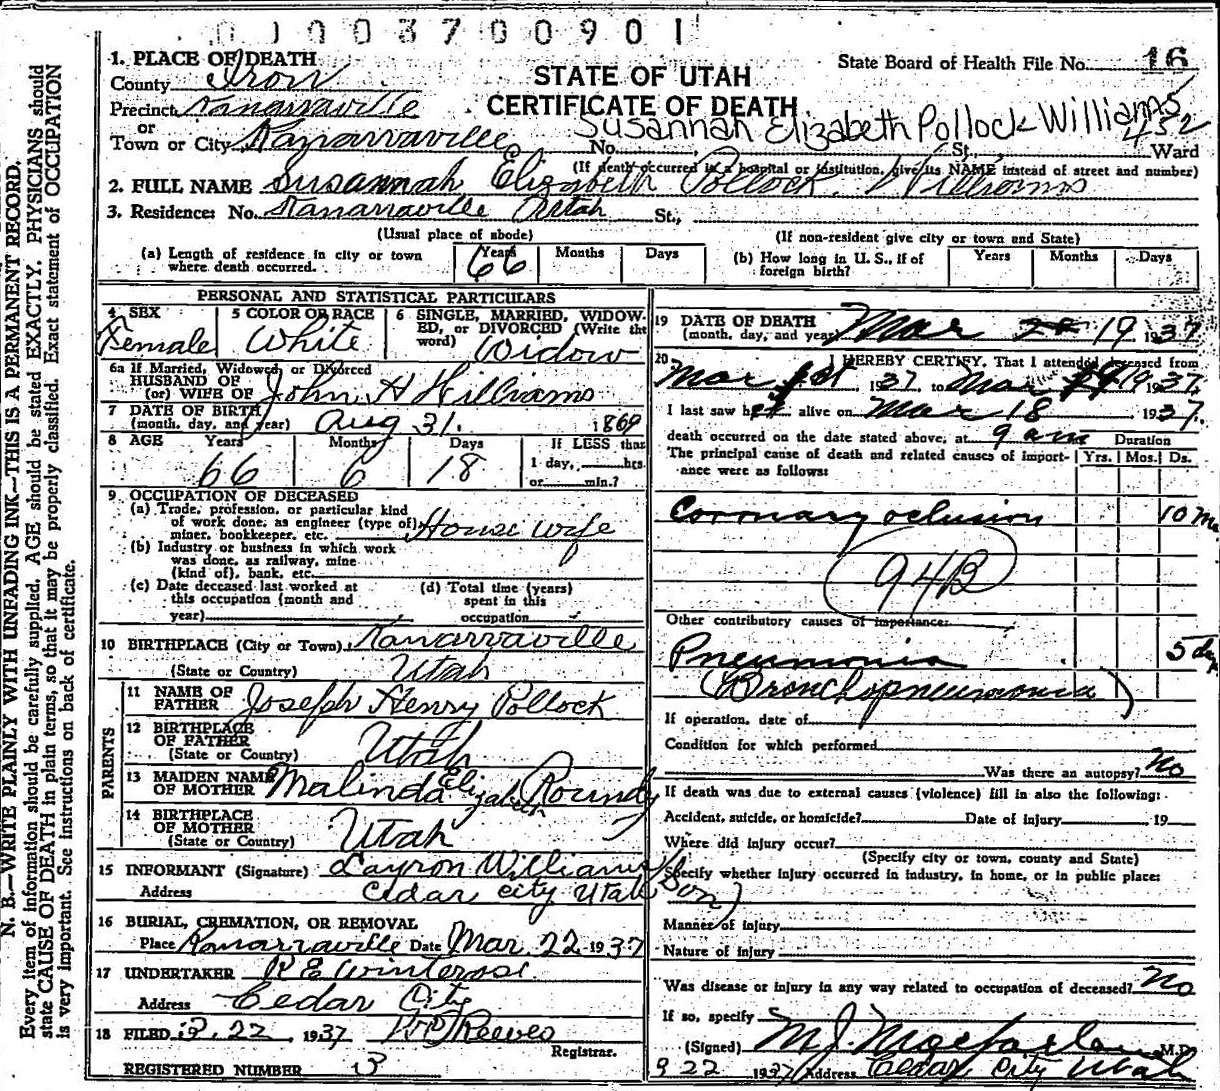 0 0 0 3 7 0 0 9 0 1
1. PLACE OF DEATH
County Iron
Precinct Kanarraville
or
Town or City Kanarraville
STATE OF UTAH
CERTIFICATE OF DEATH
State Board of Health File No. 16
Susannah Elizabeth Pollock Williams
432
No. St., Ward
(If death occurred in a hospital or institution, give its NAME instead of street and number)
2. FULL NAME Susannah Elizabeth Pollock Williams
3. Residence: No. Kanarraville Utah St.,
(Usual place of abode) (If non-resident give city or town and State)
(a) Length of residence in city or town where death occurred. Years 66 Months Days
(b) How long in U. S., if of foreign birth? Years Months Days
PERSONAL AND STATISTICAL PARTICULARS
4 SEX Female
5 COLOR OR RACE White
6 SINGLE, MARRIED, WIDOWED, or DIVORCED (Write the word) Widow
6a If Married, Widowed, or Divorced
HUSBAND OF
(or) WIFE OF John H Williams
7 DATE OF BIRTH
(month, day, and year) Aug 31. 1869
8 AGE Years Months Days If LESS than
66 6 18 1 day, hrs.
or min.?
9 OCCUPATION OF DECEASED
(a) Trade, profession, or particular kind
of work done, as engineer (type of)
miner, bookkeeper, etc. House wife
(b) Industry or business in which work
was done, as railway, mine
(kind of), bank, etc.
(c) Date deceased last worked at
this occupation (month and
year)
(d) Total time (years)
spent in this
occupation
10 BIRTHPLACE (City or Town) Kanarraville
(State or Country) Utah
PARENTS
11 NAME OF
FATHER Joseph Henry Pollock
12 BIRTHPLACE
OF FATHER
(State or Country) Utah
13 MAIDEN NAME
OF MOTHER Malinda Elizabeth Roundy
14 BIRTHPLACE
OF MOTHER
(State or Country) Utah
15 INFORMANT (Signature) Layron Williams (Son)
Address Cedar City Utah
16 BURIAL, CREMATION, OR REMOVAL
Place Kanarraville Date Mar. 22 1937
17 UNDERTAKER
Address Cedar City
18 FILED 3. 22 1937
Registrar.
REGISTERED NUMBER 3
19 DATE OF DEATH
(month, day, and year) Mar 19 1937
20 I HEREBY CERTIFY, That I attended deceased from
Mar 1937, to Mar 19 1937.
I last saw her alive on Mar 18 1937.
death occurred on the date stated above, at 9 am Duration
The principal cause of death and related causes of importance were as follows: Yrs. Mos. Ds.
Coronary oclusion 10
94B
Other contributory causes of importance:
Pneumonia 5 days
(Bronchopneumonia)
If operation, date of
Condition for which performed
Was there an autopsy? No
If death was due to external causes (violence) fill in also the following:
Accident, suicide, or homicide? Date of injury 19
Where did injury occur?
(Specify city or town, county and State)
Specify whether injury occurred in industry, in home, or in public place:
Manner of injury
Nature of injury
Was disease or injury in any way related to occupation of deceased? No
If so, specify
(Signed) M J Macfarlane M.D.
22 1937 Address Cedar City Utah
N. B.—WRITE PLAINLY WITH UNFADING INK—THIS IS A PERMANENT RECORD.
Every item of information should be carefully supplied. AGE should be stated EXACTLY. PHYSICIANS should
state CAUSE OF DEATH in plain terms, so that it may be properly classified. Exact statement of OCCUPATION
is very important. See instructions on back of certificate.